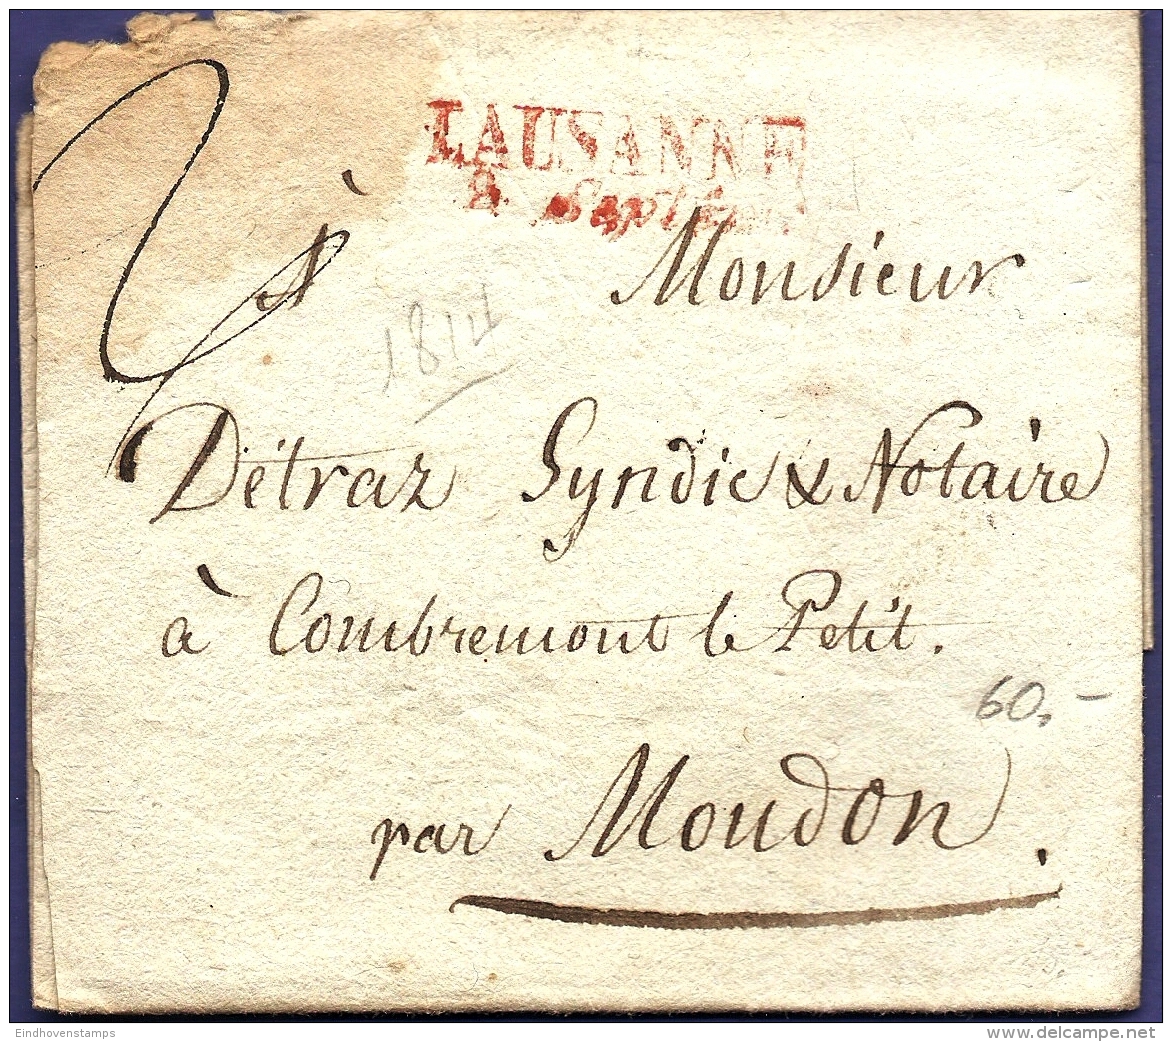 LAUSANNE
2 Septem
à Monsieur
1814
Détraz Syndic & Notaire
à Combremont le Petit.
60,-
par Moudon.
Eindhovenstamps
delcampe.net